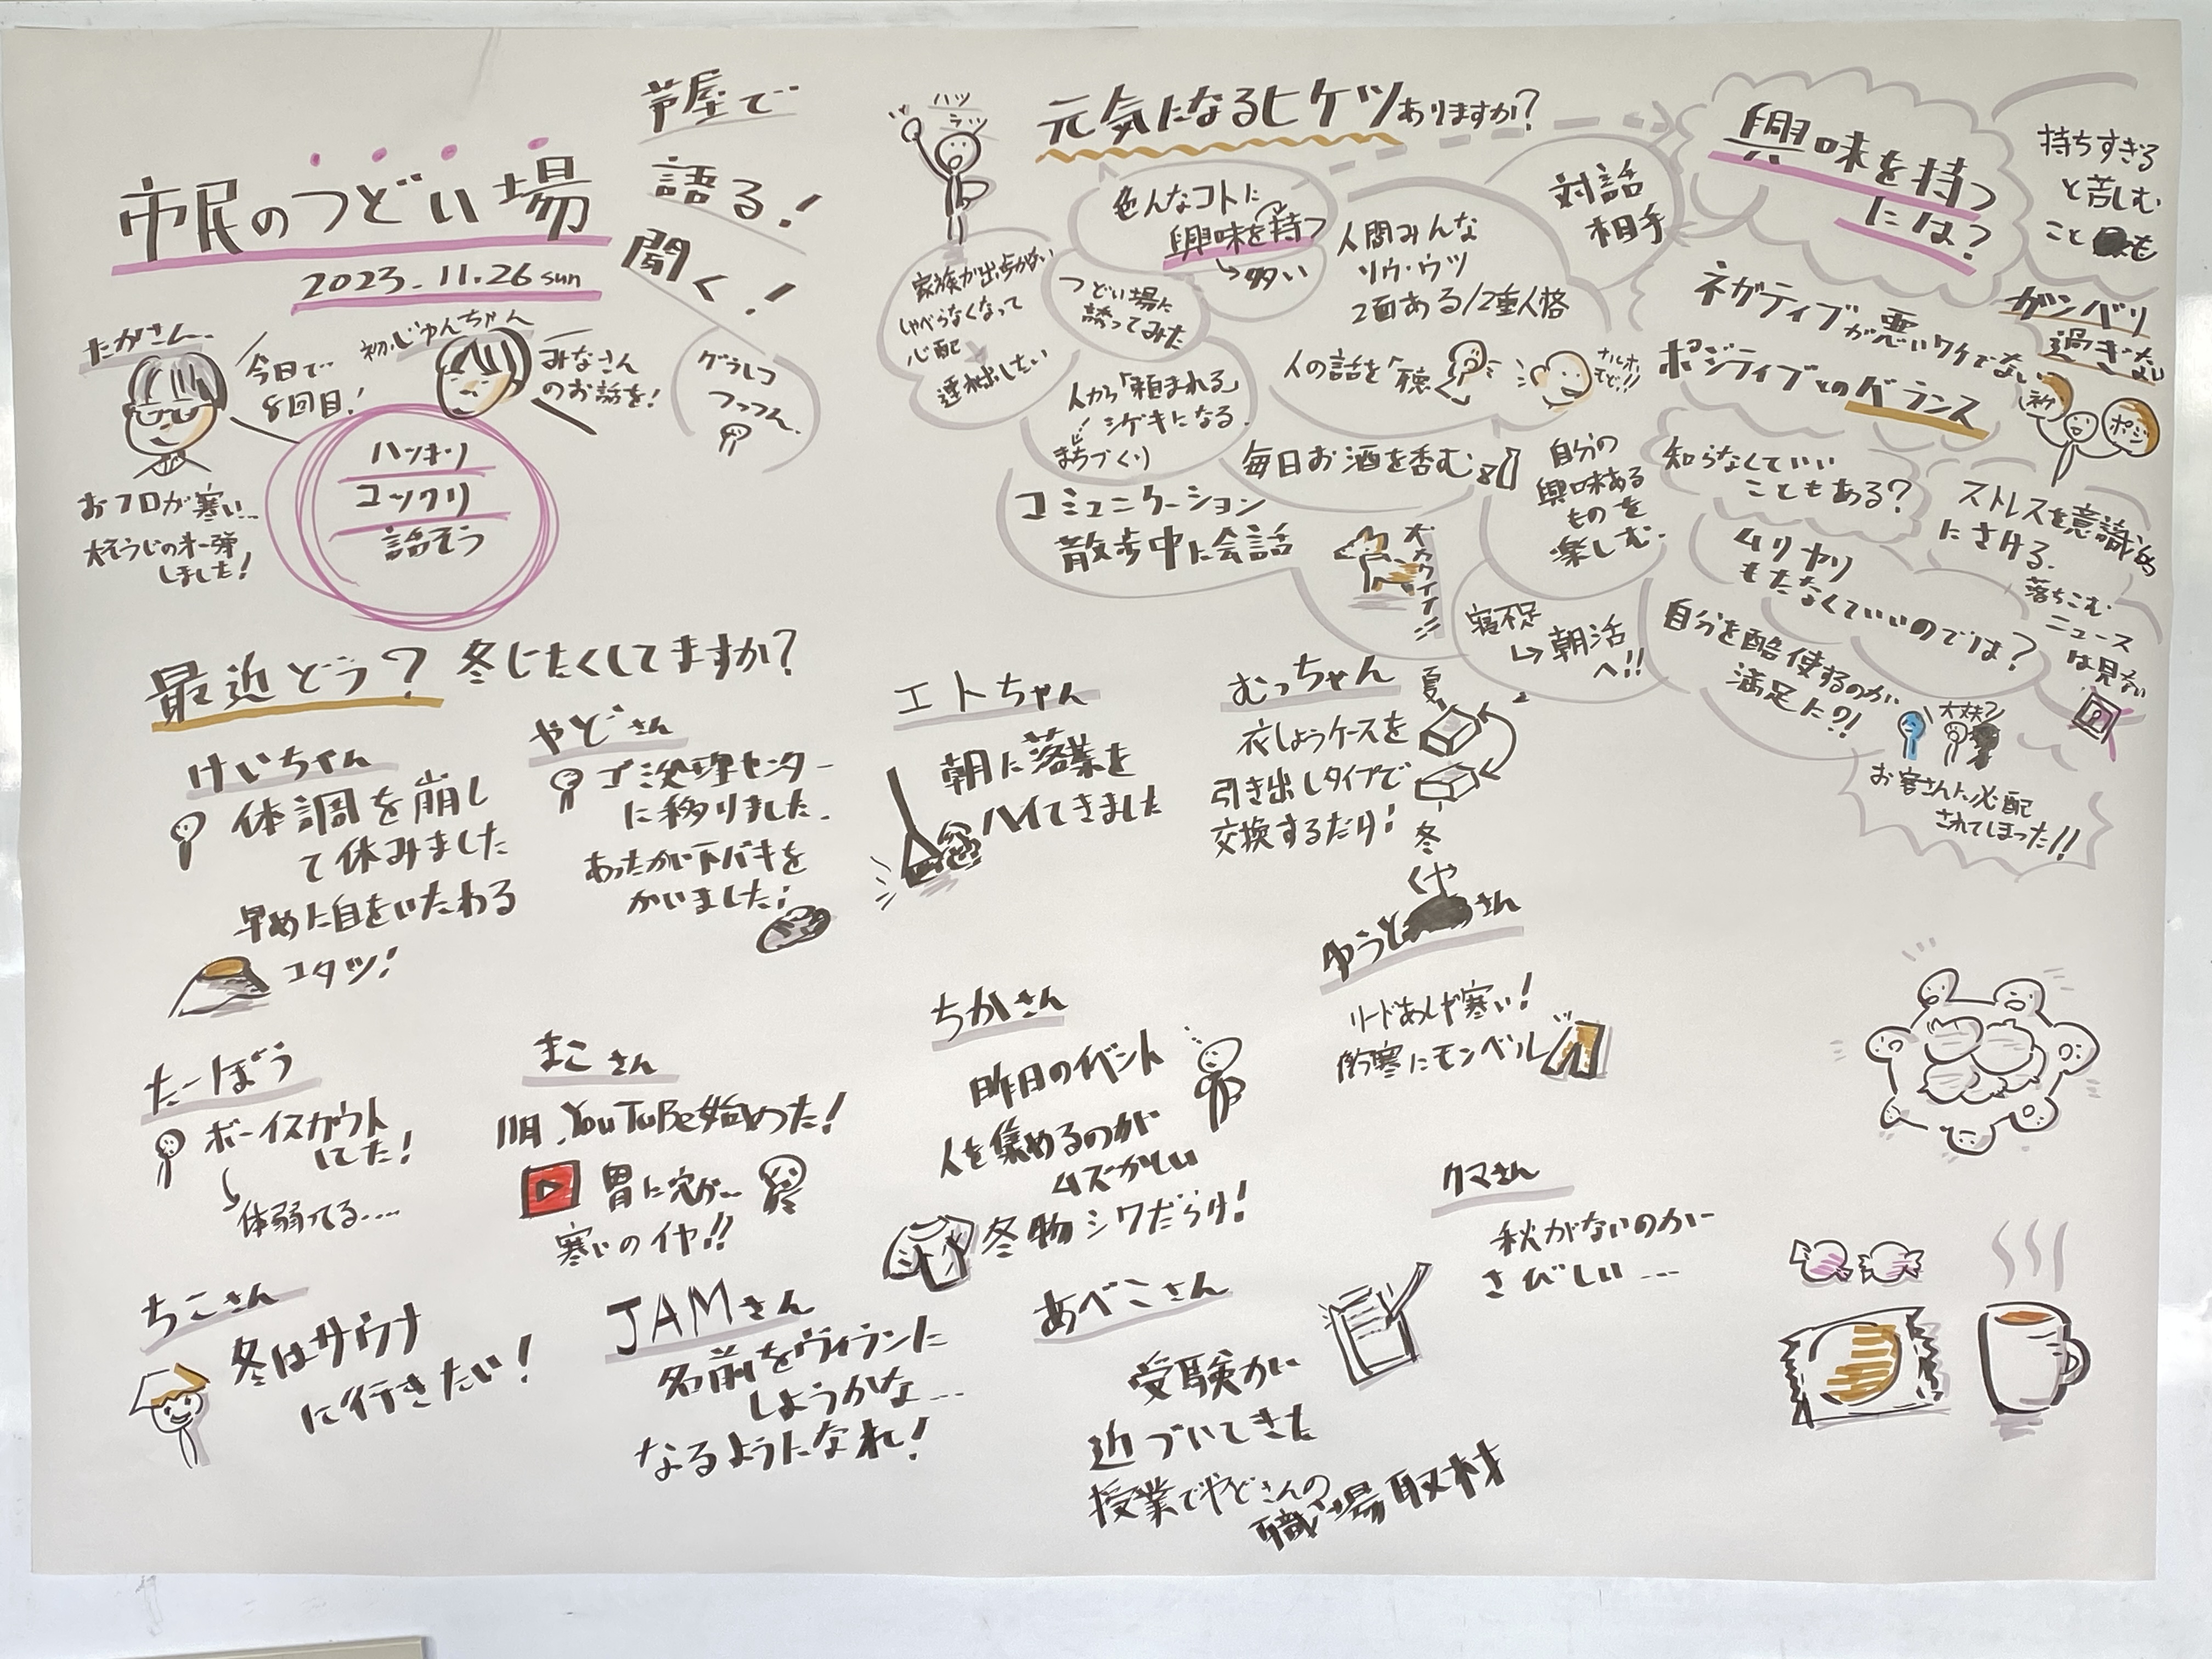 市民のつどい場
2023.11.26 sun
芦屋で
語る!
聞く!
たかさん
今日で
8回目!
初.じゅんちゃん
みなさん
のお話を!
グラレコ
つっつん
ハッキリ
ユックリ
話そう
おフロが寒い…
大そうじの第一弾
しました!
ハツ
ラツ
元気になるヒケツありますか?
色んなコトに
興味を持つ
↳多い
家族が出歩かない
しゃべらなくなって
心配
連れ出したい
つどい場に
誘ってみた
人間みんな
ソウ・ウツ
2面ある/2重人格
対話
相手
人から「頼まれる」
シゲキになる
まちづくり
人の話を「聴く
ナルホ
ドど!!
毎日お酒を呑む
コミュニケーション
散歩中に会話
犬カワイイ=
自分の
興味ある
ものを
楽しむ.
寝不足
↳朝活
へ!!
興味を持つ
には?
持ちすぎる
と苦しむ
ことも
ネガティブが悪いワケでない
ポジティブとのバランス
ガンバリ
過ぎない
ネガ
ポジ
知らなくていい
こともある?
ストレスを意識的
にさける.
落ちこむ
ニュース
は見ない
ムリヤリ
もたなくていいのでは?
自分を酷使するのが
満足に?!
大丈夫?
お客さんに心配
されてしまった!!
最近どう? 冬じたくしてますか?
けいちゃん
体調を崩し
て休みました
早めに自をいたわる
コタツ!
やどさん
ゴミ処理センター
に移りました.
あったかい下バキを
かいました!
エトちゃん
朝に落葉を
ハイてきました
むっちゃん
夏
衣しょうケースを
引き出しタイプで
交換するだけ!
冬
くや
ゆうとさん
リードあしや寒い!
防寒にモンベル
たーぼう
ボーイスカウト
してた!
体弱ってる….
まこさん
11月.YouTuBe始めた!
胃に穴が…
寒いのイヤ!!
ちかさん
昨日のイベント
人を集めるのが
ムズかしい
冬物シワだらけ!
クマさん
秋がないのが
さびしい…
ちこさん
冬はサウナ
に行きたい!
JAMさん
名前をヴィランに
しようかな…
なるようになれ!
あべこさん
受験が
近づいてきた
授業でやどさんの
職場取材